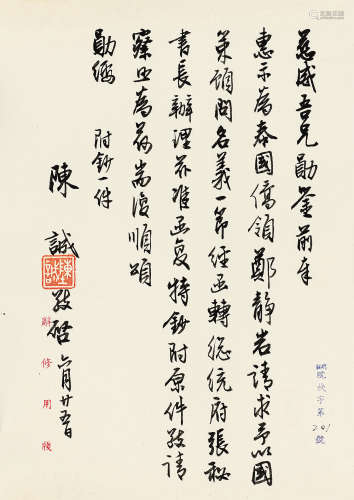 慕威吾兄勛鑒前奉
惠示為泰國僑領鄭靜岩請求予以國
策顧問名義一節經函轉總統府張秘
書長辦理茲准函復特鈔附原件敬請
察照為荷耑復順頌
勛綏
附鈔一件
陳誠
敬啓 六月廿五日
辭修用牋
陽院秋字第
201
號